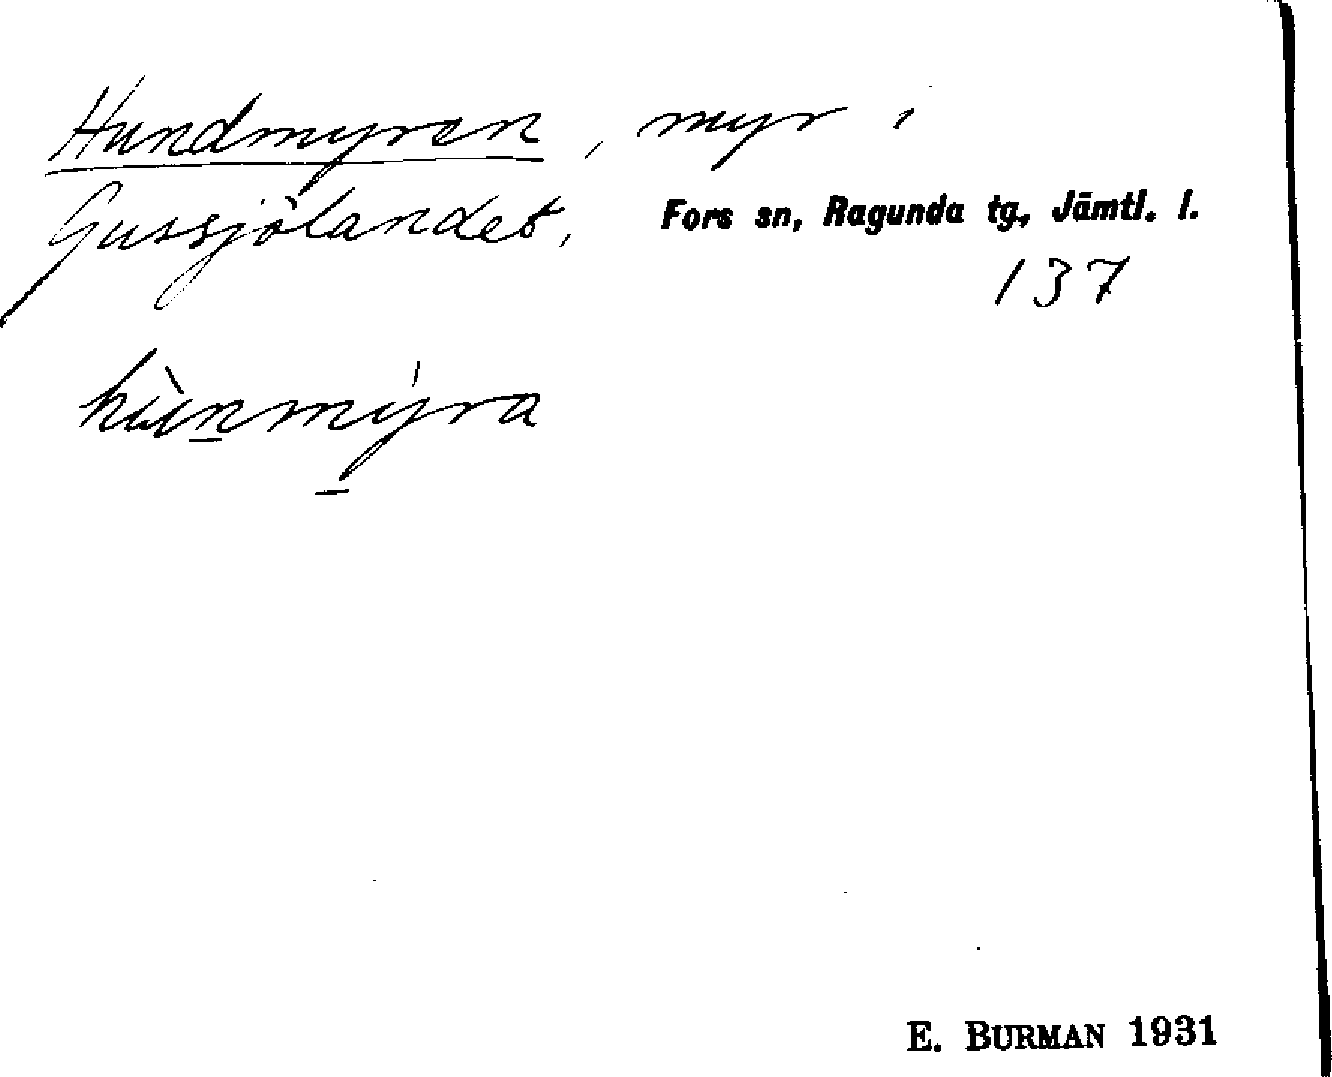 Hundmyren, myr i
Gussjölandet, Fors sn, Ragunda tg, Jämtl. l.
137
hùn̠mýra
E. BURMAN 1931